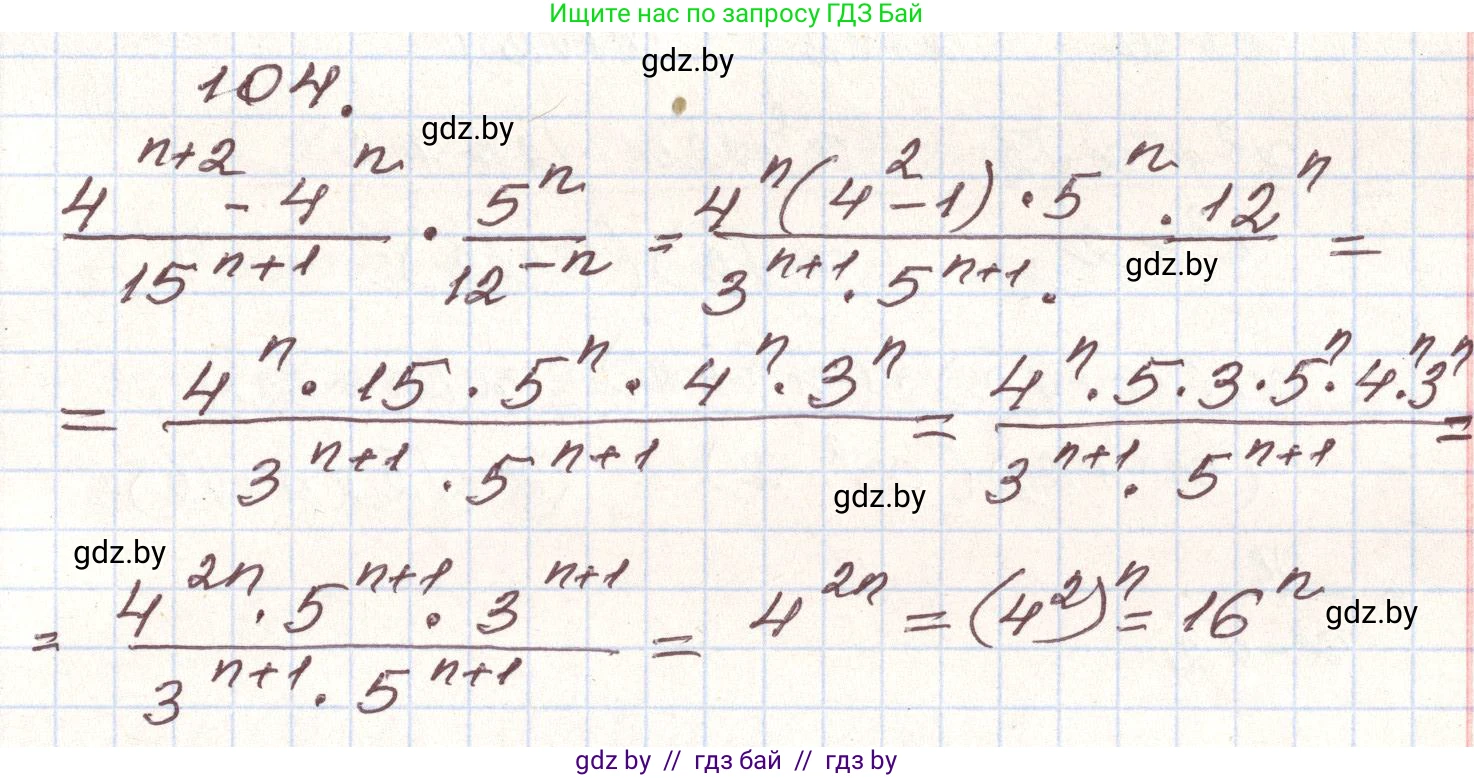 Ищите нас по запросу ГДЗ Бай
gdz.by
104.
gdz.by
(4^(n+2) - 4^n)/15^(n+1) · 5^n/12^(-n) = (4^n(4^2-1)·5^n·12^n)/(3^(n+1)·5^(n+1)·) =
gdz.by
= (4^n·15·5^n·4^n·3^n)/(3^(n+1)·5^(n+1)) = (4^n·5·3·5^n·4^n·3^n)/(3^(n+1)·5^(n+1)) =
gdz.by
gdz.by
= (4^(2n)·5^(n+1)·3^(n+1))/(3^(n+1)·5^(n+1)) = 4^(2n) = (4^2)^n = 16^n
gdz.by
gdz by // гдз бай // гдз by